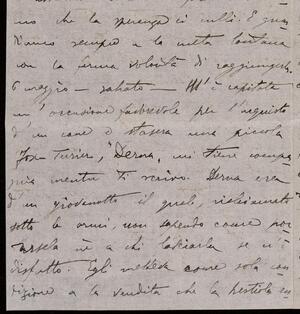 mo che la speranza ci culli. E guar
diamo sempre a la meta lontana
con la ferma volontà di raggiungerla.
6 maggio – sabato – M'è capitata
un'occasione favorevole per l'acquisto
d'un cane e stasera una piccola
Fox Terier, "Derna", mi tiene compa
gnia mentre ti scrivo. Derna era
d'un giovanotto il quale, richiamato
sotto le armi, non sapendo come por
tarsela nè a chi lasciarla se n'è
disfatto. Egli metteva come sola con
dizione a la vendita che la bestiola